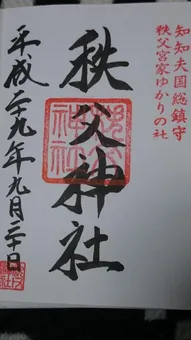 知知夫国総鎮守
秩父宮家ゆかりの社
秩父神社
平成二十九年九月二十日